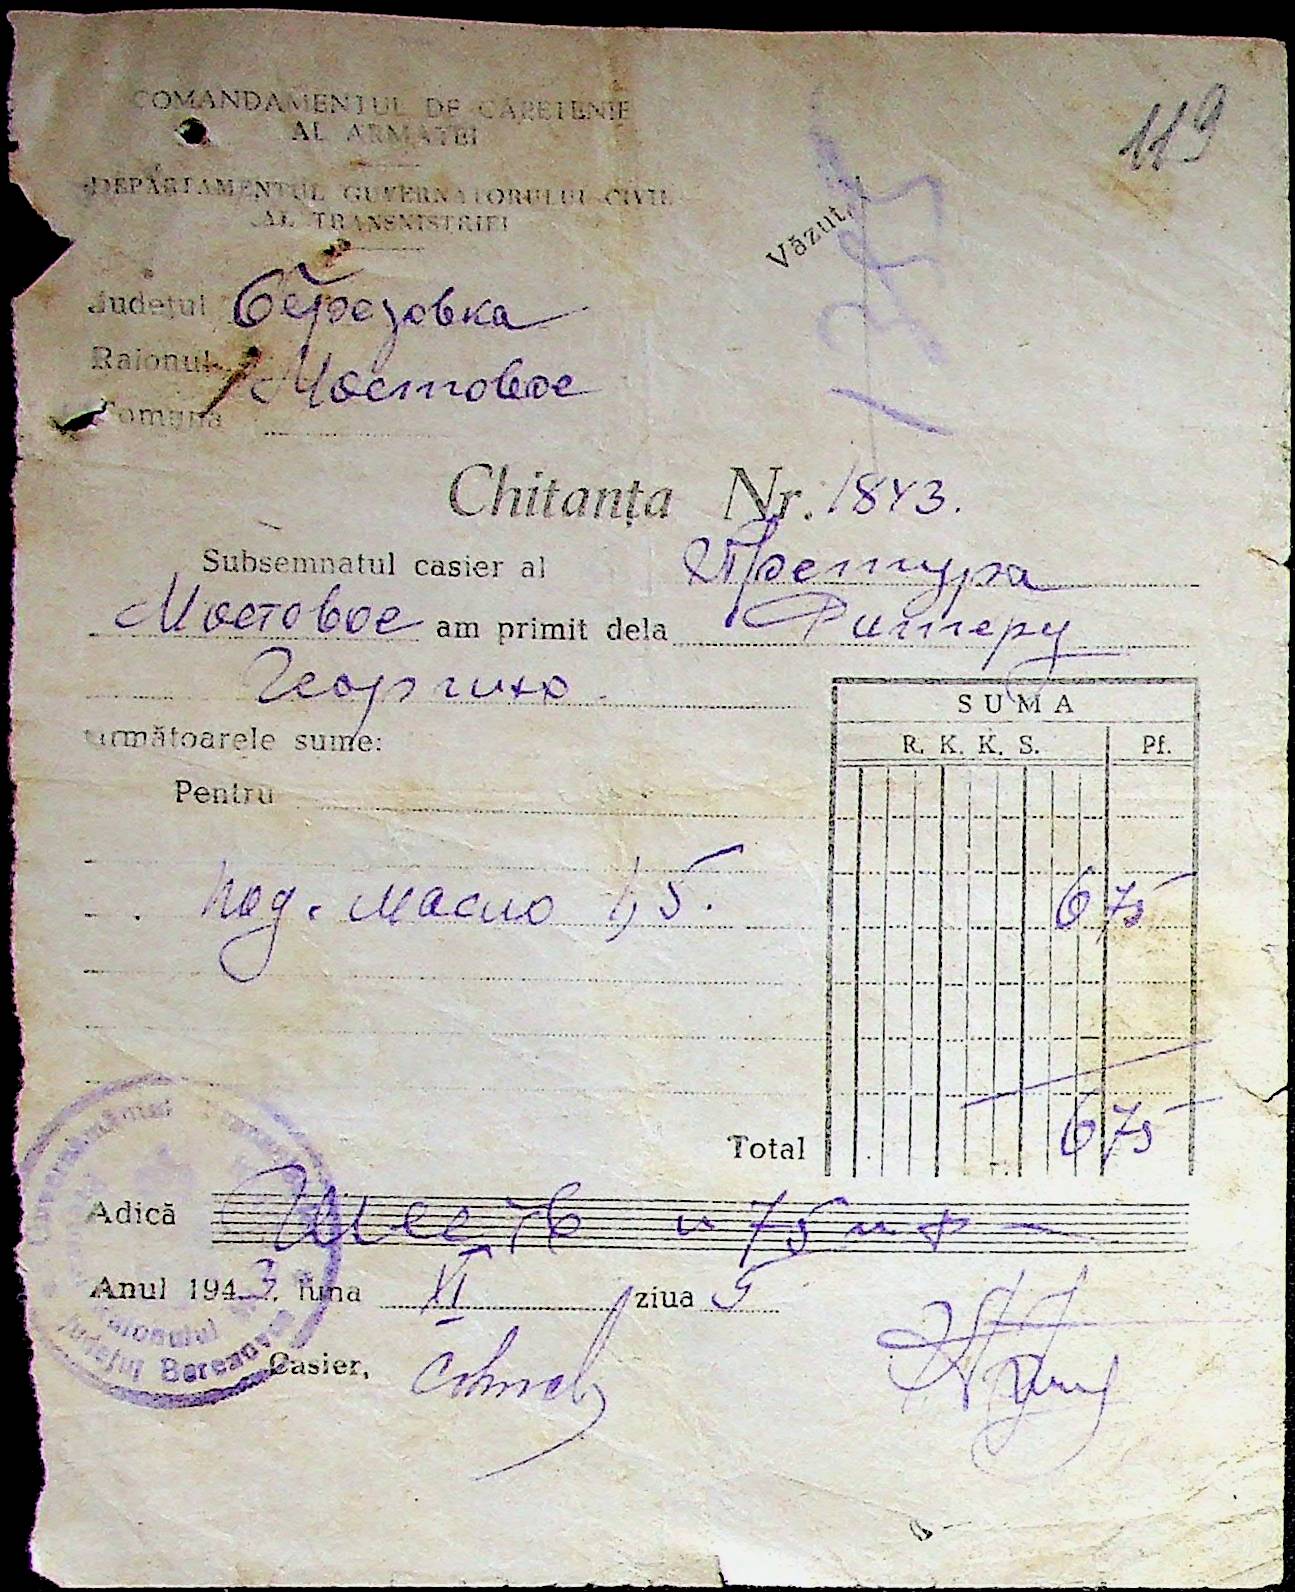 119
COMANDAMENTUL DE CĂPETENIE
AL ARMATEI
DEPARTAMENTUL GUVERNATORULUI CIVIL
AL TRANSNISTRIEI
Văzut,
Județul Березовка
Raionul Мостовое
Comuna
Chitanța Nr. 1843.
Subsemnatul casier al Претура
Мостовое am primit dela Риттеру
Георгию
următoarele sume:
SUMA
R. K. K. S. Pf.
Pentru
под. масло 1,5. 6 75
Total 6 75
Adică Шесть и 75 пф
Anul 1943. luna XI ziua 5
Casier,
Guvernământul
Raionului
Județul